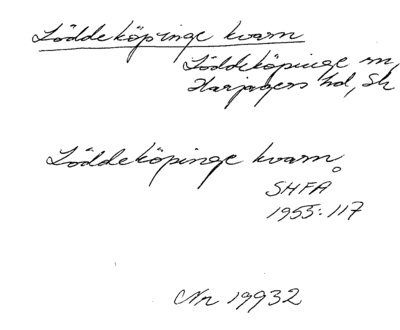 Löddeköpinge kvarn
Löddeköpinge sn,
Harjagers hd, Sk
Löddeköpinge kvarn
SHFÅ
1955:117
Nr 19932